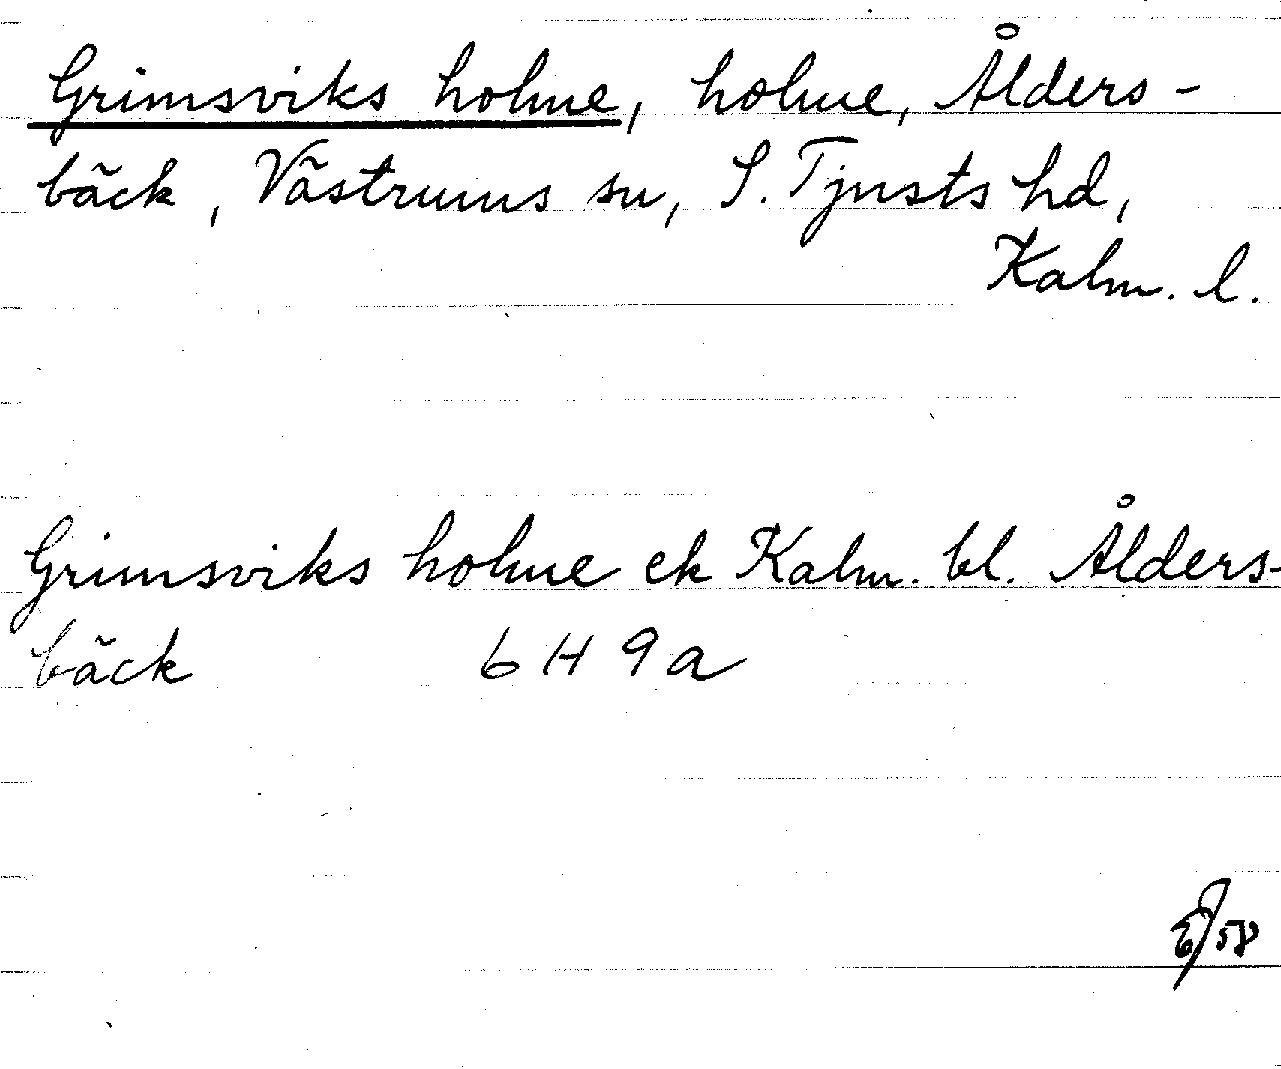 Grimsviks holme, holme, Ålders-
bäck, Västrums sn, S. Tjusts hd,
Kalm. l.
Grimsviks holme ek Kalm. bl. Ålders-
bäck 6 H 9 a
/58